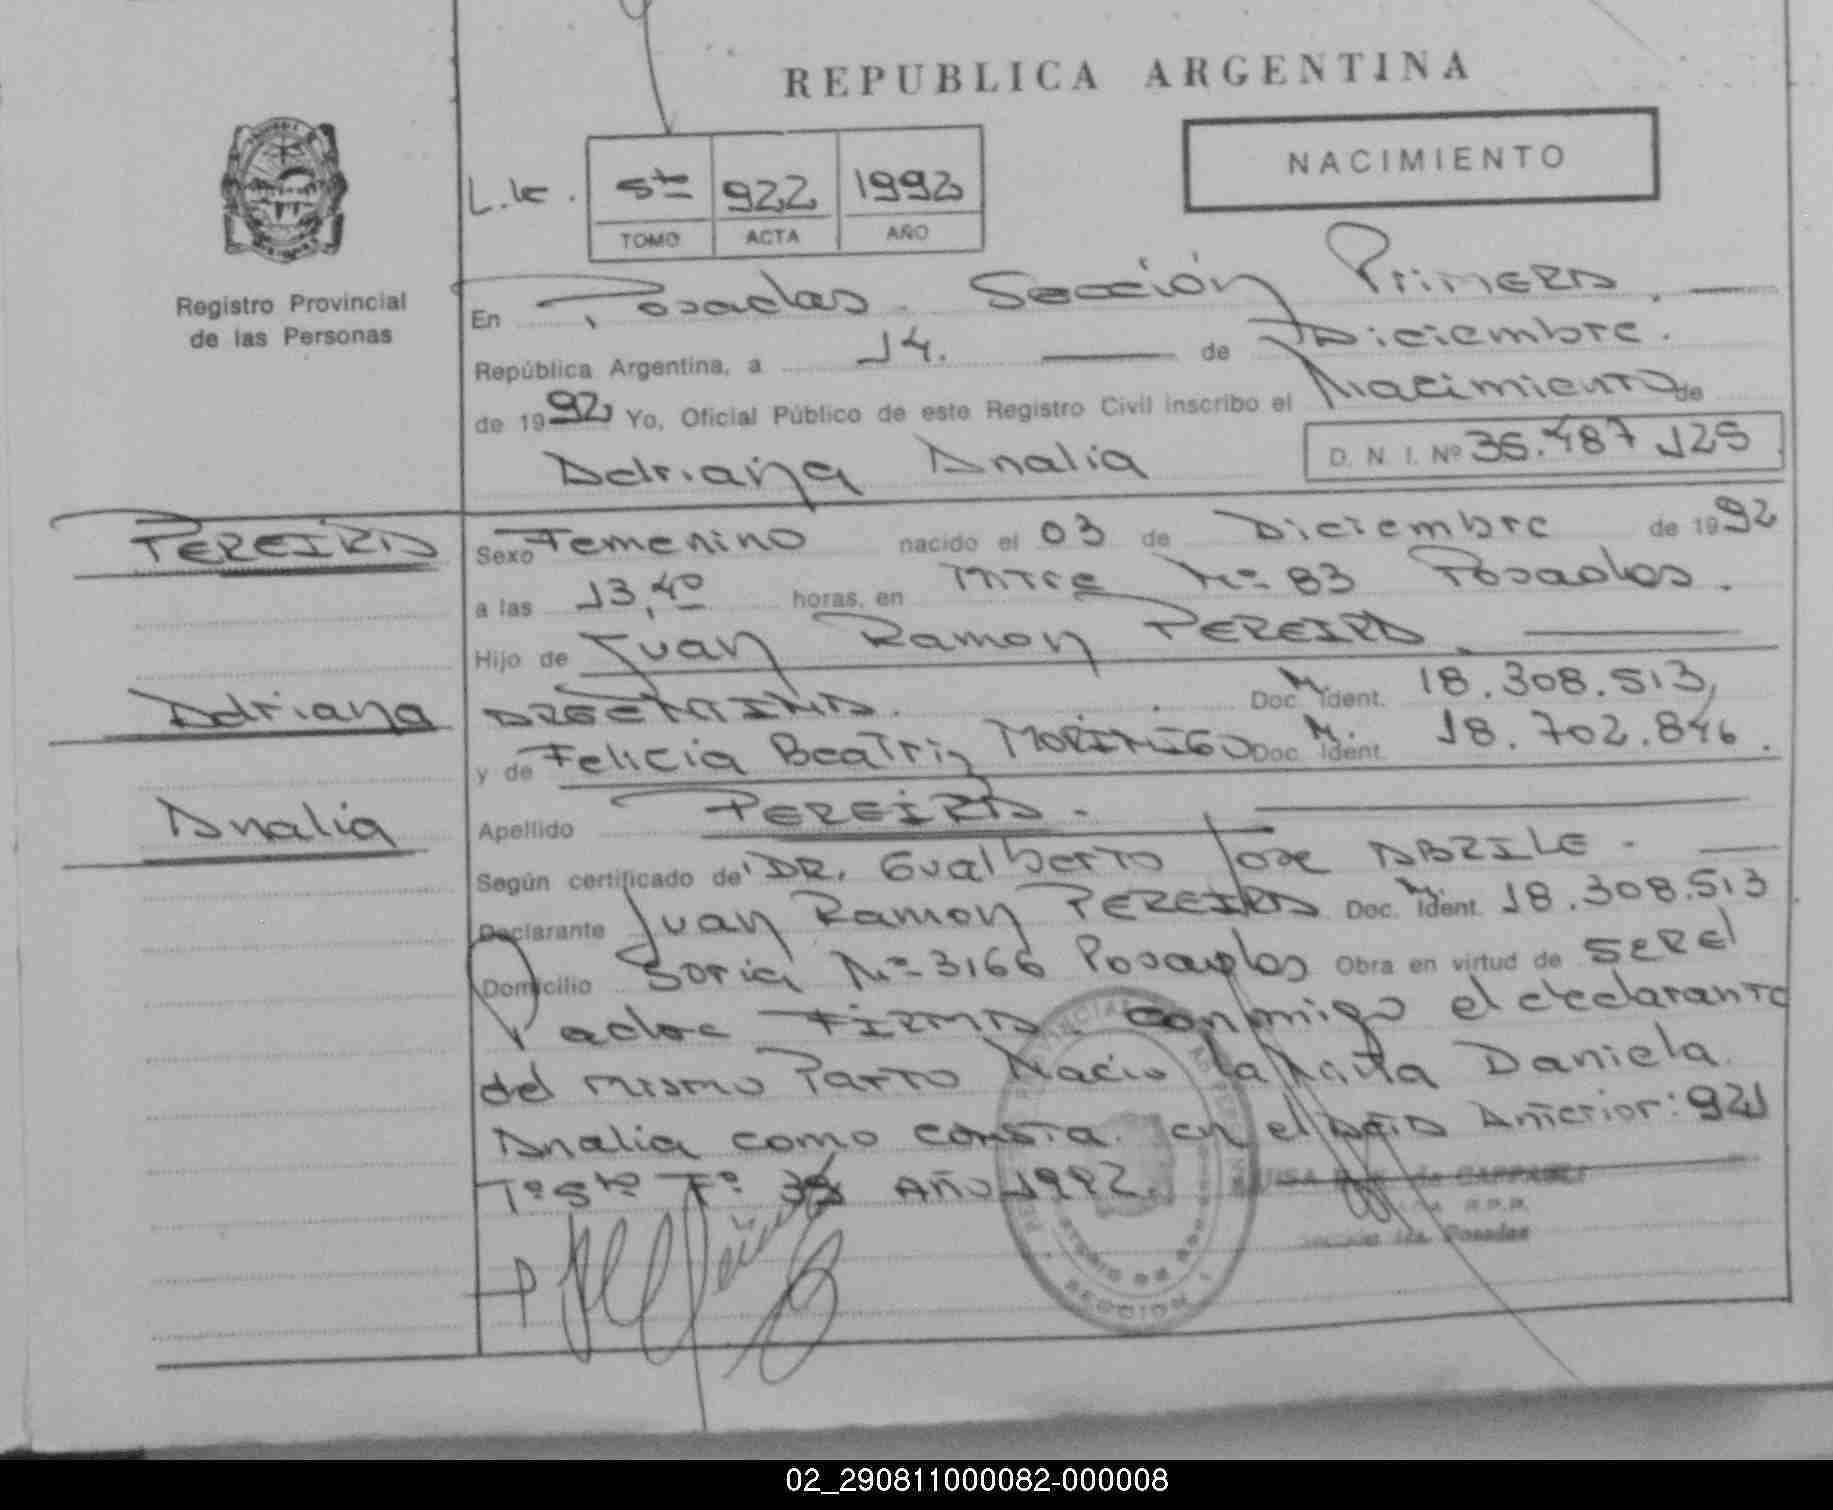 REPUBLICA ARGENTINA
NACIMIENTO
Registro Provincial
de las Personas
5to 922 1992
TOMO ACTA AÑO
En Posadas Sección Primera.
República Argentina, a 14. de Diciembre.
de 1992 Yo, Oficial Público de este Registro Civil inscribo el Nacimiento de
Adriana Analia D. N. I. Nº 36.487 125
PEREIRA
Adriana
Analia
Sexo Femenino nacido el 03 de Diciembre de 1992
a las 13,40 horas, en Mitre Nº 83 Posadas.
Hijo de Juan Ramon PEREIRA
ARGENTINA. Doc. M. Ident. 18.308.513,
y de Felicia Beatriz MORINIGO Doc. M. Ident. 18.702.846.
Apellido PEREIRA.
Según certificado de DR. Gualberto Jose ABRILE.
Declarante Juan Ramon PEREIRA Doc. M. Ident. 18.308.513
Domicilio Soria Nº 3166 Posadas Obra en virtud de SER el
Padre FIRMA conmigo el declarante
del mismo Parto Nacio la Niña Daniela
Analia como consta en el Acta Anterior: 921
Tº 5to Fº Año 1992.
Sección 1ra. Posadas
SECCION 1
02_290811000082-000008